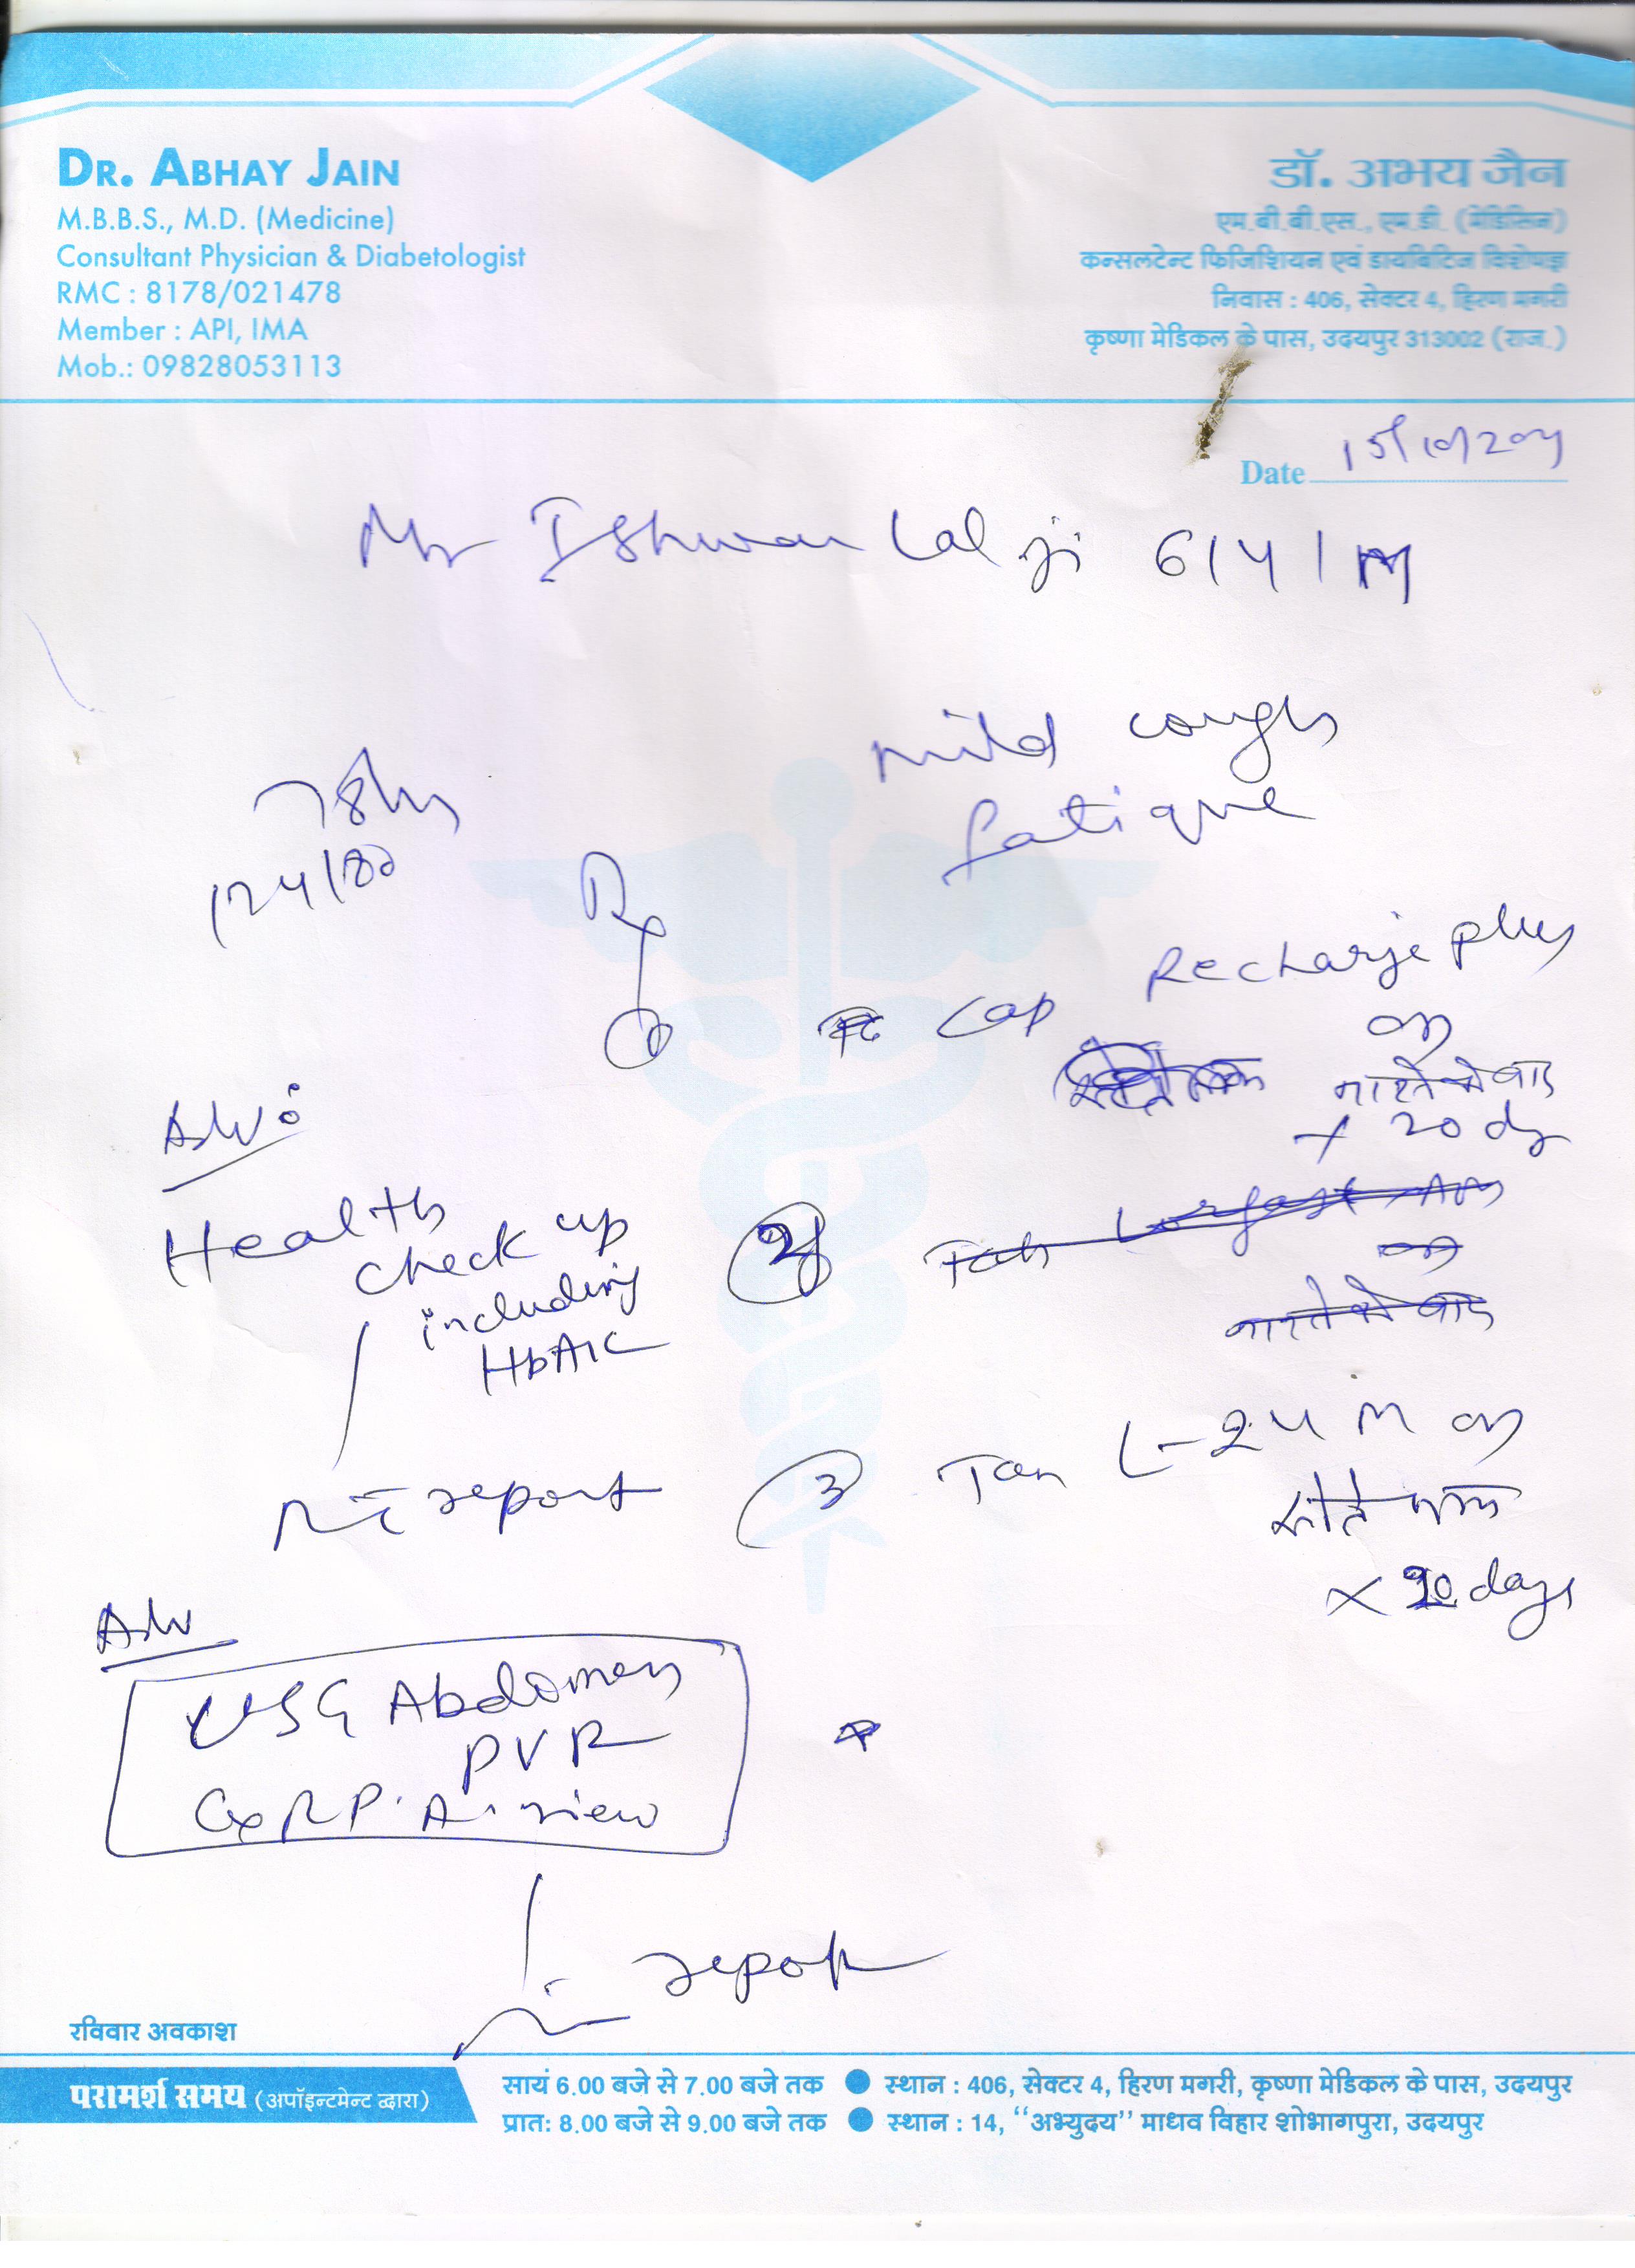 DR. ABHAY JAIN
M.B.B.S., M.D. (Medicine)
Consultant Physician & Diabetologist
RMC : 8178/021478
Member : API, IMA
Mob.: 09828053113
डॉ. अभय जैन
एम.बी.बी.एस., एम.डी. (मेडिसिन)
कन्सलटेन्ट फिजिशियन एवं डायबिटिज विशेषज्ञ
निवास : 406, सेक्टर 4, हिरण मगरी
कृष्णा मेडिकल के पास, उदयपुर 313002 (राज.)
Date 15/10/
Mr Ishwar Lal ji
mild cough
fatique
124/80
Rx
① Cap Recharge plus
नाश्ते के बाद
x 20 dy
Adv:
Health
check up
including
HbA1C
report
②
नाश्ते के बाद
③
सोते
days
Adv
USG Abdomen
PVR
review
report
रविवार अवकाश
परामर्श समय (अपॉइन्टमेन्ट द्वारा)
सायं 6.00 बजे से 7.00 बजे तक ● स्थान : 406, सेक्टर 4, हिरण मगरी, कृष्णा मेडिकल के पास, उदयपुर
प्रात: 8.00 बजे से 9.00 बजे तक ● स्थान : 14, ‘‘अभ्युदय’’ माधव विहार शोभागपुरा, उदयपुर